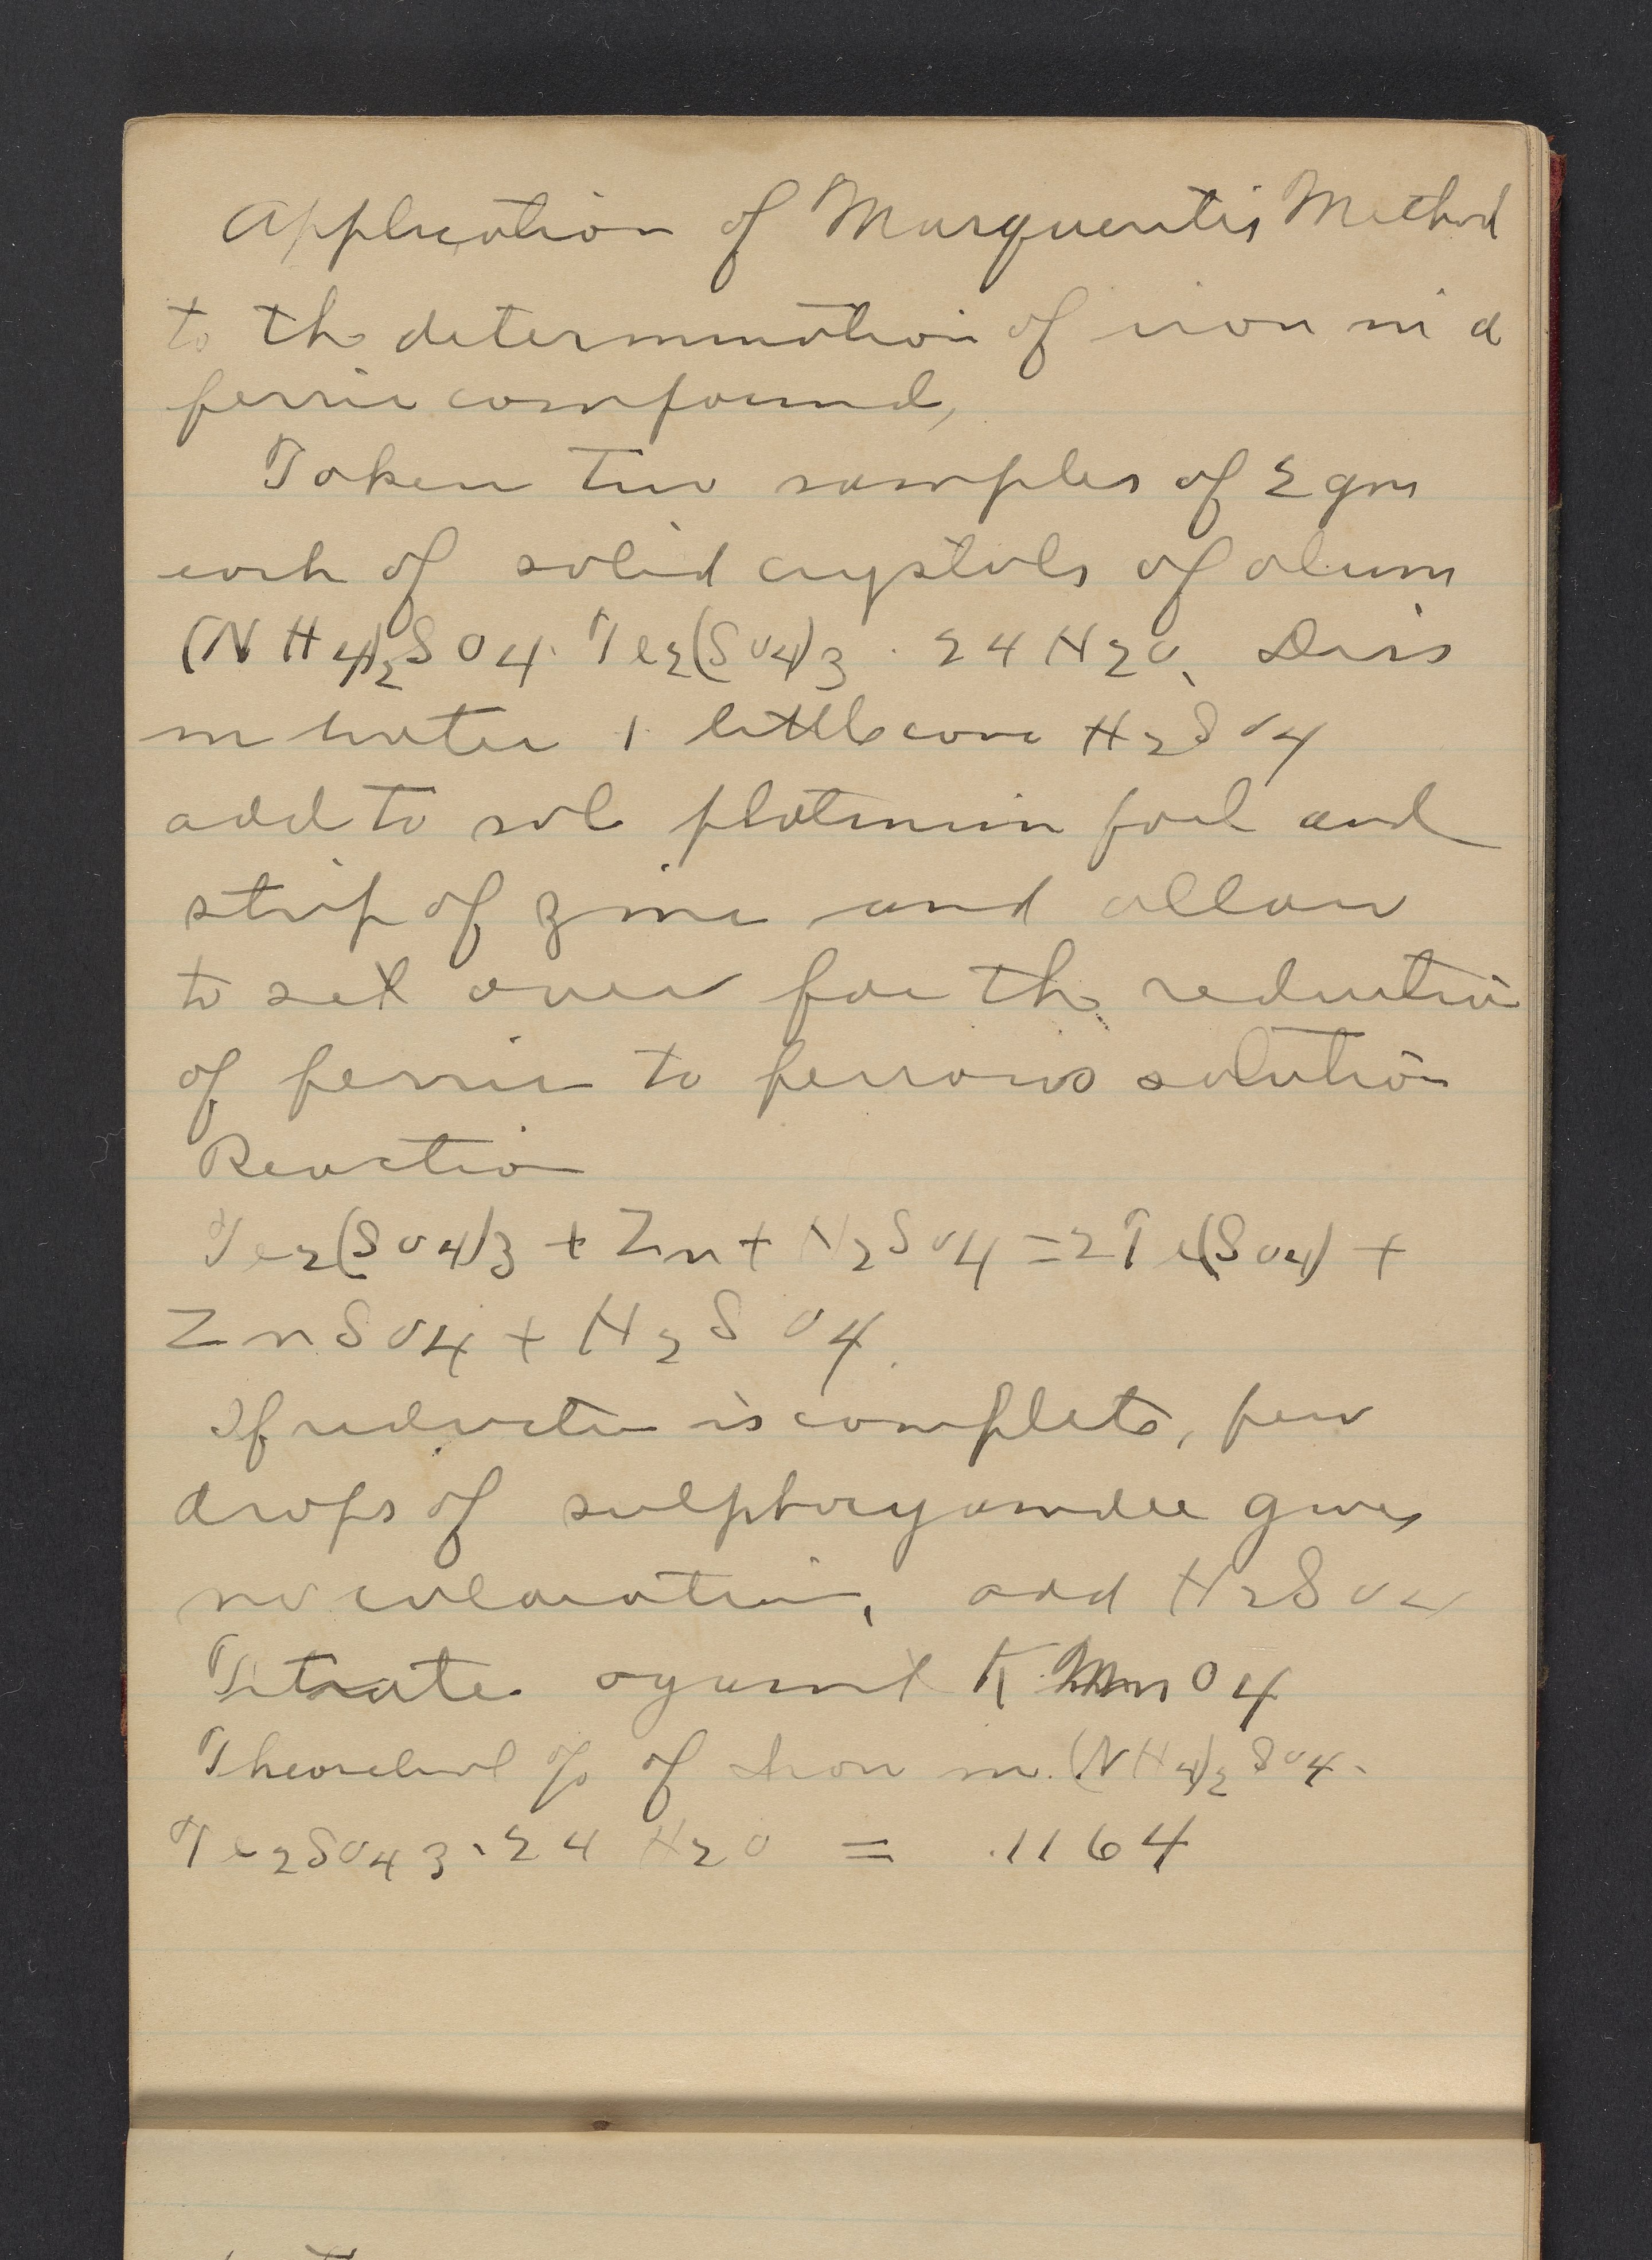 Application of Marguerites Method
to the determination of iron in a
ferric compound,
Taken two samples of 2 gm
each of solid crystals of alum
(NH4)2SO4. Fe2(SO4)3 . 24H2O, Diss
in water + little conc H2SO4
add to sol platinum foil and
strip of zinc and allow
to set over for the reduction
of ferric to ferrous solution
Reaction
Fe2(SO4)3 + Zn + H2SO4 = 2Fe(SO4) +
ZnSO4 + H2SO4.
If reduction is complete, few
drops of sulphocyanide gives
no coloration, add H2SO4
Titrate against KMnO4
Theoretical % of Iron in (NH4)2SO4.
Fe2SO43.24 H2O = .1164